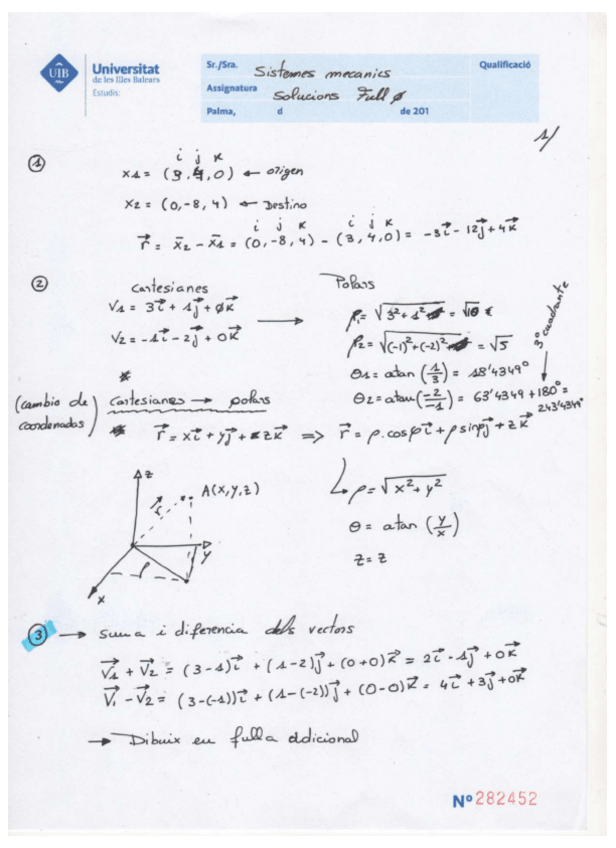 UIB Universitat
de les Illes Balears
Estudis:
Sr./Sra. Sistemes mecanics
Qualificació
Assignatura Solucions Full ø
Palma, d de 201
1/
① i j k
x1 = (3, 4, 0) ← origen
x2 = (0, -8, 4) ← Destino
i j k i j k
r⃗ = x̄2 - x̄1 = (0, -8, 4) - (3, 4, 0) = -3i⃗ - 12j⃗ + 4k⃗
② Cartesianes Polars
V1 = 3i⃗ + 1j⃗ + øk⃗ → ρ1 = √(3² + 1²) = √10
V2 = -1i⃗ - 2j⃗ + 0k⃗ ρ2 = √((-1)² + (-2)²) = √5
θ1 = atan (1/3) = 18'4349°
θ2 = atan (-2/-1) = 63'4349 + 180° =
243'4349°
3º cuadrante
(cambio de coordenadas) Cartesianes → polars
r⃗ = xi⃗ + yj⃗ + zk⃗ ⇒ r⃗ = ρ.cosφi⃗ + ρ sinφj⃗ + zk⃗
z
A(x,y,z)
r
y
ρ
x
ρ = √(x² + y²)
θ = atan (y/x)
z = z
③ → Suma i diferencia dels vectors
V⃗1 + V⃗2 = (3-1)i⃗ + (1-2)j⃗ + (0+0)k⃗ = 2i⃗ - 1j⃗ + 0k⃗
V⃗1 - V⃗2 = (3-(-1))i⃗ + (1-(-2))j⃗ + (0-0)k⃗ = 4i⃗ + 3j⃗ + 0k⃗
→ Dibuix en fulla addicional
Nº 282452